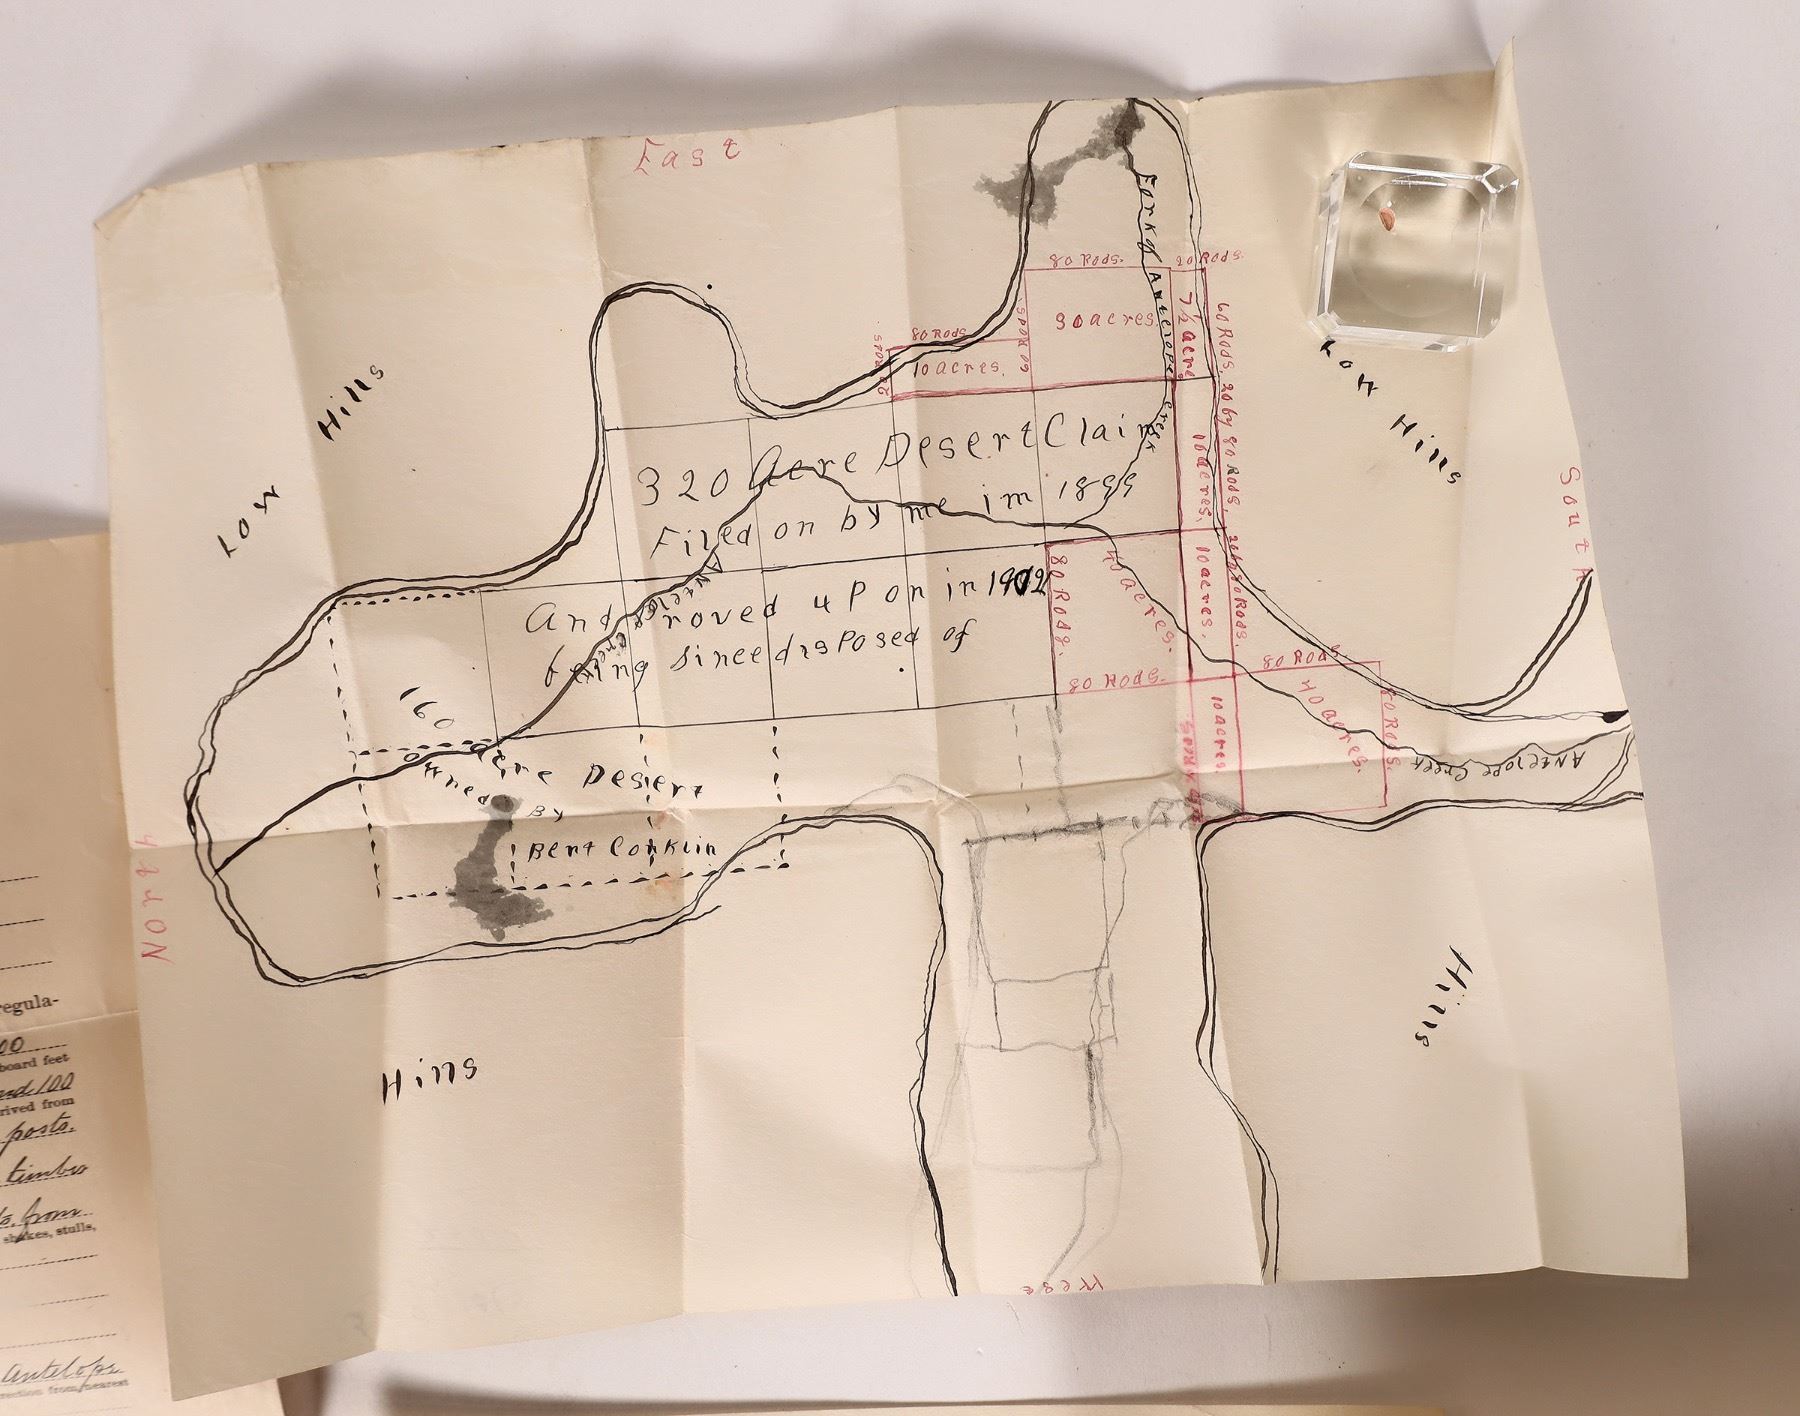 East
Low Hills
Low Hills
South
North
West
Hills
Hills
Fork of Antelope Creek
80 Rods.
20 Rods.
30 acres.
7½ acre
80 Rods
20 Rods
60 Rods
10 acres.
60 Rods, 20 by 80 Rods, 20 by 80 Rods.
10 acres.
10 acres.
10 acres.
320 Acre Desert Claim
Filed on by me im 1899
And Proved uP on in 1902
being Since disPosed of
Antelope Creek
80 Rods.
40 acres.
80 Rods.
80 Rods.
40 acres.
80 Rods.
Antelope Creek
160 acre Desert
owned By
Bert Conklin
regula-
00
board feet
and 100
rived from
posts.
timber
from
shakes, stulls,
Antelope
rection from nearest